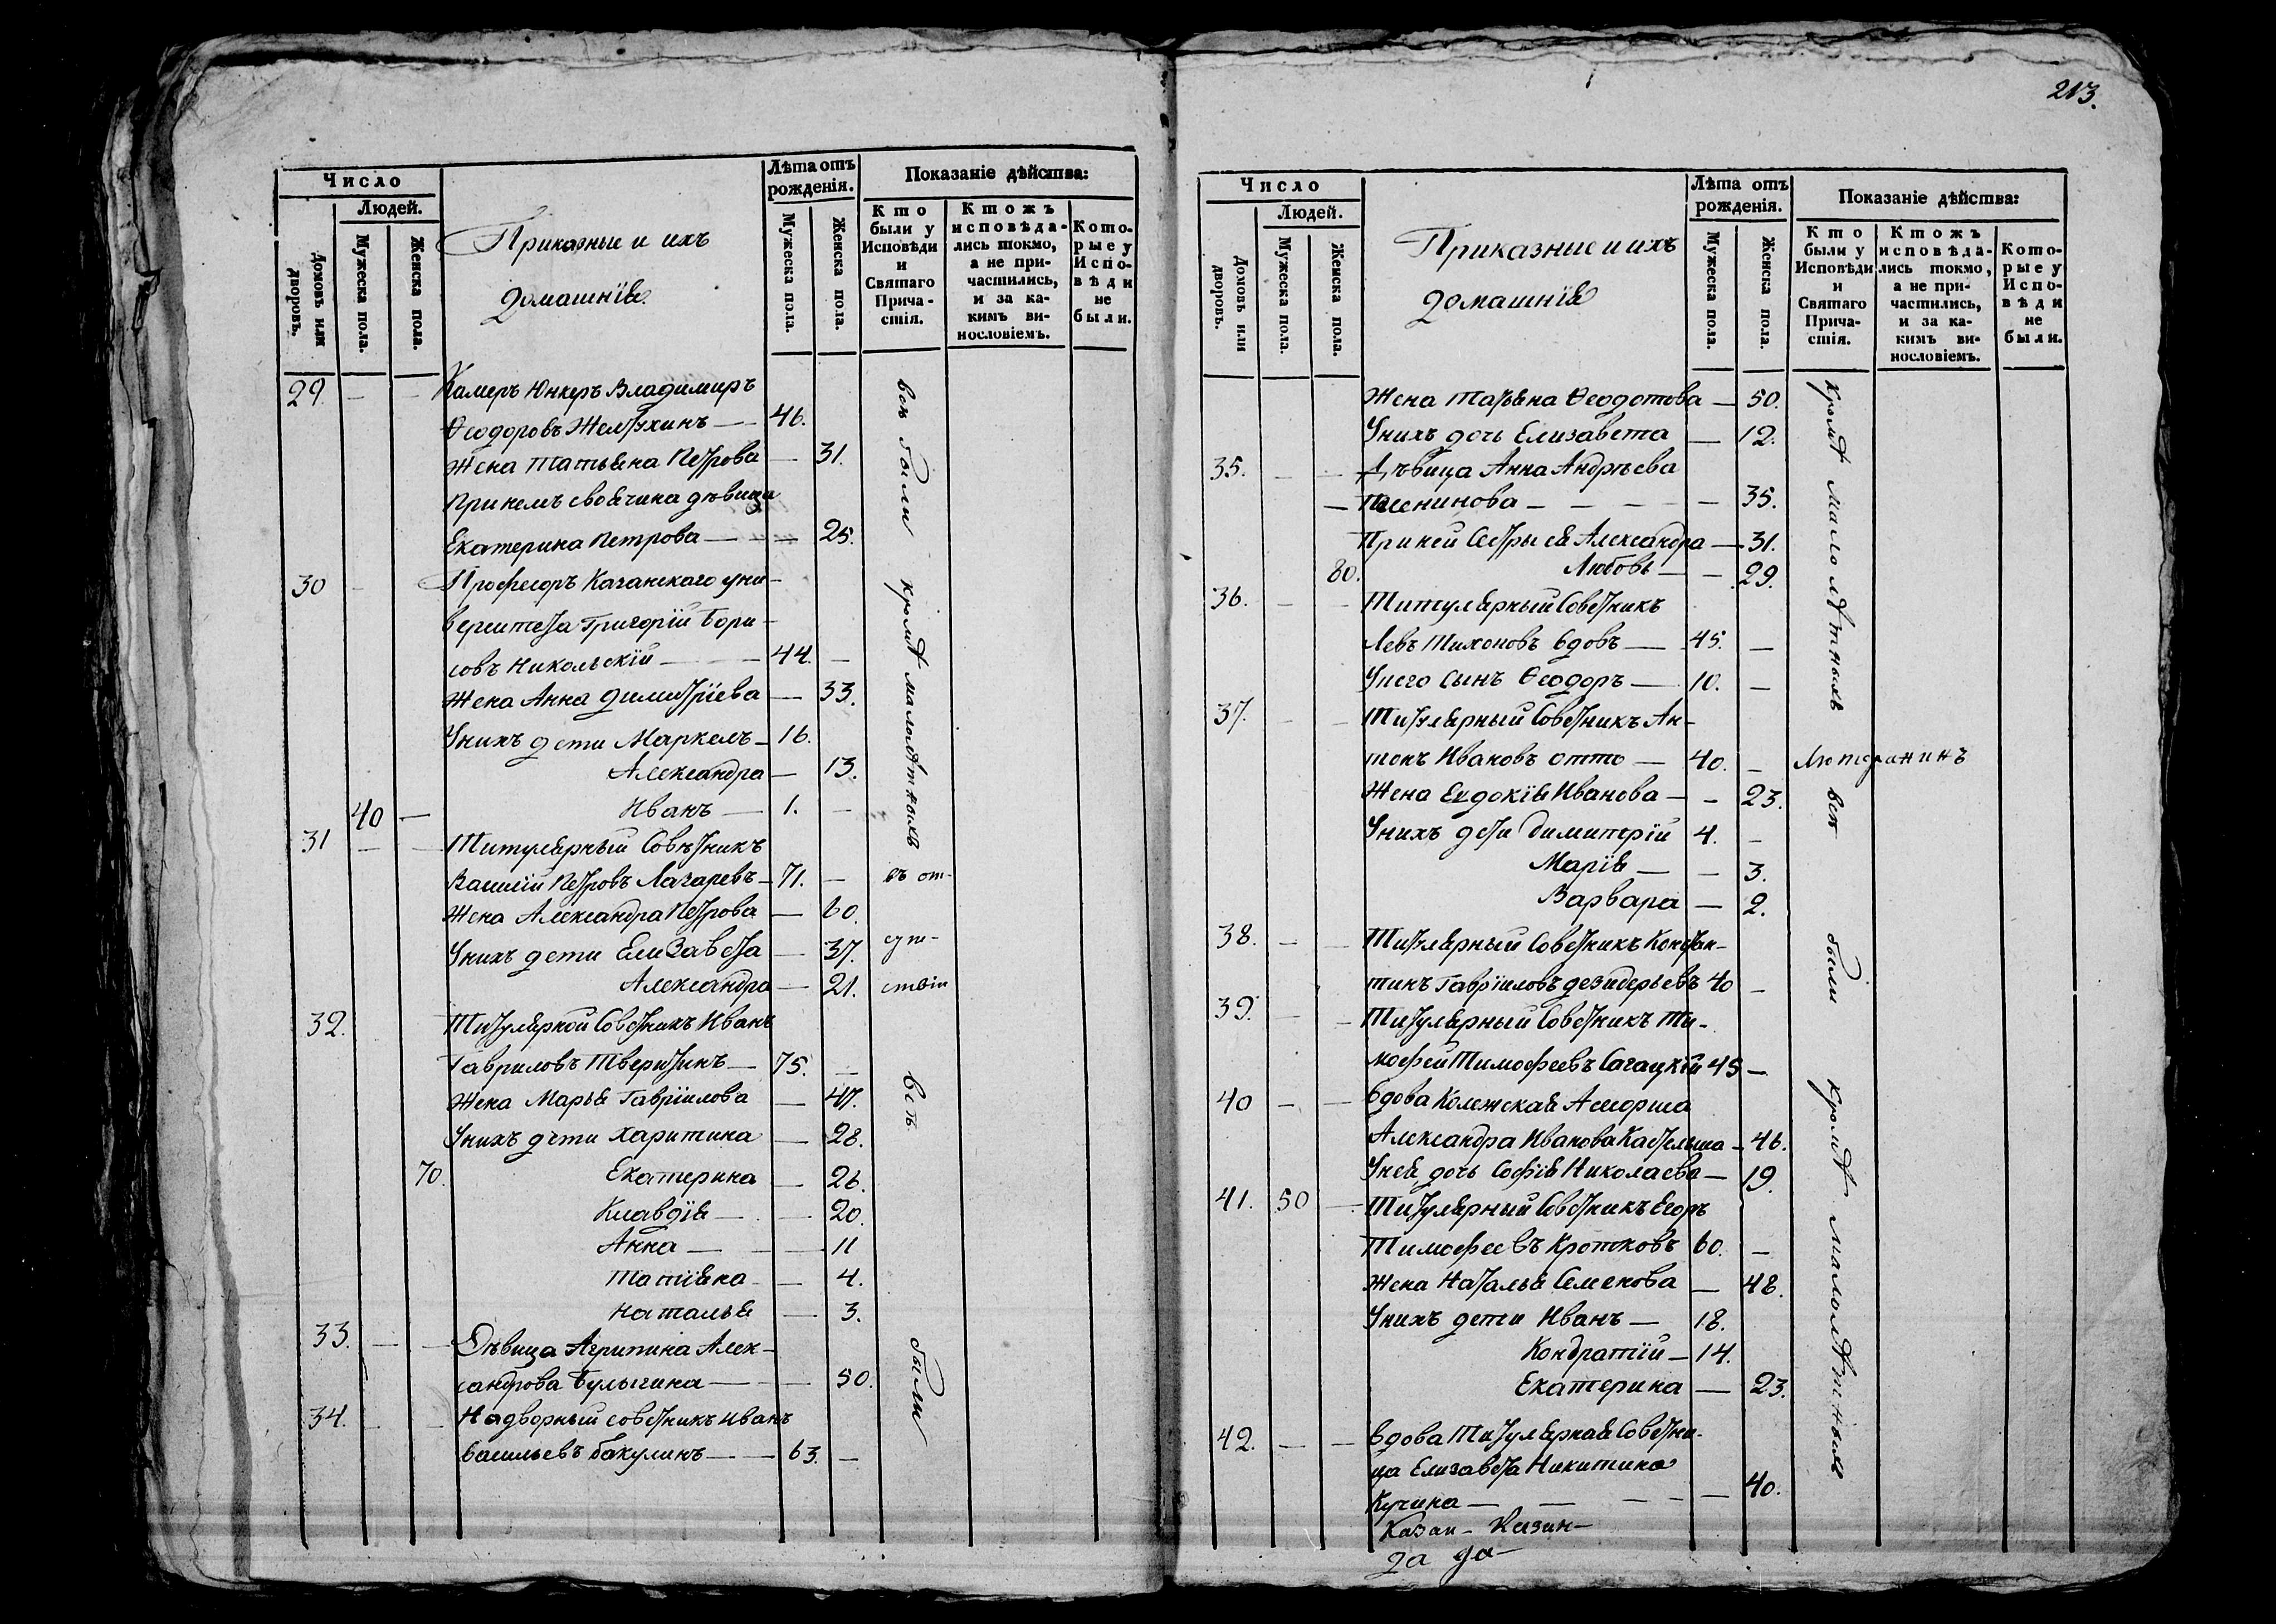 213.
Число
Людей.
Домовъ или дворовъ.
Мужеска пола.
Женска пола.
Приказные и ихъ
домашнія
Лѣта отъ рожденія.
Мужеска пола.
Женска пола.
Показаніе дѣйства:
Кто были у Исповѣди и Святаго Прича-стія.
Ктожъ исповѣда-лись токмо, а не при-частились, и за ка-кимъ ви-нословіемъ.
Кото-рые у Испо-вѣди не были.
29 — — Камеръ Юнкеръ Владимиръ
Ѳеодоровъ Желтухинъ — 46.
Жена Татьяна Петрова — 31.
При немъ своячина дѣвица
Екатерина Петрова — — 25.
30 — Професоръ Казанскаго уни-
верситета Григорій Бори-
совъ Никольскій — 44. —
Жена Анна Димитріева — 33.
У нихъ дети Маркелъ — 16.
Александра — 13.
40 — Иванъ — 1. —
31 — — Титулярный Совѣтникъ
Василій Петровъ Лазаревъ — 71. —
Жена Александра Петрова — 60.
У нихъ дети Елизавета — 37.
Александра — 21.
32. Титулярной Советникъ Иванъ
Гавриловъ Тверитинъ — 75. —
Жена Марья Гавріилова — 47.
У нихъ дѣти Харитина — 28.
70. Екатерина — 26.
Клавдія — — 20.
Анна — — 11
Татіяна — 4.
Наталья — 3.
33. — — Дѣвица Агрипина Алек-
сандрова Булыгина — — 50.
34. — — Надворный советникъ Иванъ
Васильевъ Бакулинъ — — 63. —
всѣ были кромѣ малолѣтныхъ
въ от-
сут-
ствіи
всѣ были
Число
Людей.
Домовъ или дворовъ.
Мужеска пола.
Женска пола.
Приказные и ихъ
домашнія
Лѣта отъ рожденія.
Мужеска пола.
Женска пола.
Показаніе дѣйства:
Кто были у Исповѣди и Святаго Прича-стія.
Ктожъ исповѣда-лись токмо, а не при-частились, и за ка-кимъ ви-нословіемъ.
Кото-рые у Испо-вѣди не были.
Жена Татьяна Ѳеодотова — 50.
У нихъ дочь Елизавета — 12.
35. — — Дѣвица Анна Андрѣева
— — — — — 35.
При ней Сестры ея Александра — 31.
80. Любовь — — 29.
36. — — Титулярный Советникъ
Левъ Тихоновъ вдовъ — 45. —
У него сынъ Ѳеодоръ — 10. —
37. — — Титулярный Советникъ Ан-
тонъ Ивановъ Отто — 40. — Лютеранинъ
Жена Евдокія Иванова — — 23.
У нихъ дети Димитрій 4. —
Марія — — 3.
Варвара — 2.
38. — — Титулярный Советникъ Констан-
тинъ Гавріиловъ Дезидерьевъ 40 —
39. — — Титулярный Советникъ Ти-
мофей Тимофеевъ Сагацкій 45 —
40 — — Вдова Колежская Асессорша
Александра Иванова — 46.
У нея дочь Софія Николаева — 19.
41. 50 — Титулярный Советникъ Егоръ
Тимофеевъ Кротковъ 60. —
Жена Наталья Семенова — 48.
У нихъ дети Иванъ — 18.
Кондратій — 14.
Екатерина — 23.
42. — — Вдова Титулярная Советни-
ца Елизавета Никитина
Кучина — — — — — 40.
кромѣ малолѣтныхъ всѣ были кромѣ малолѣтныхъ